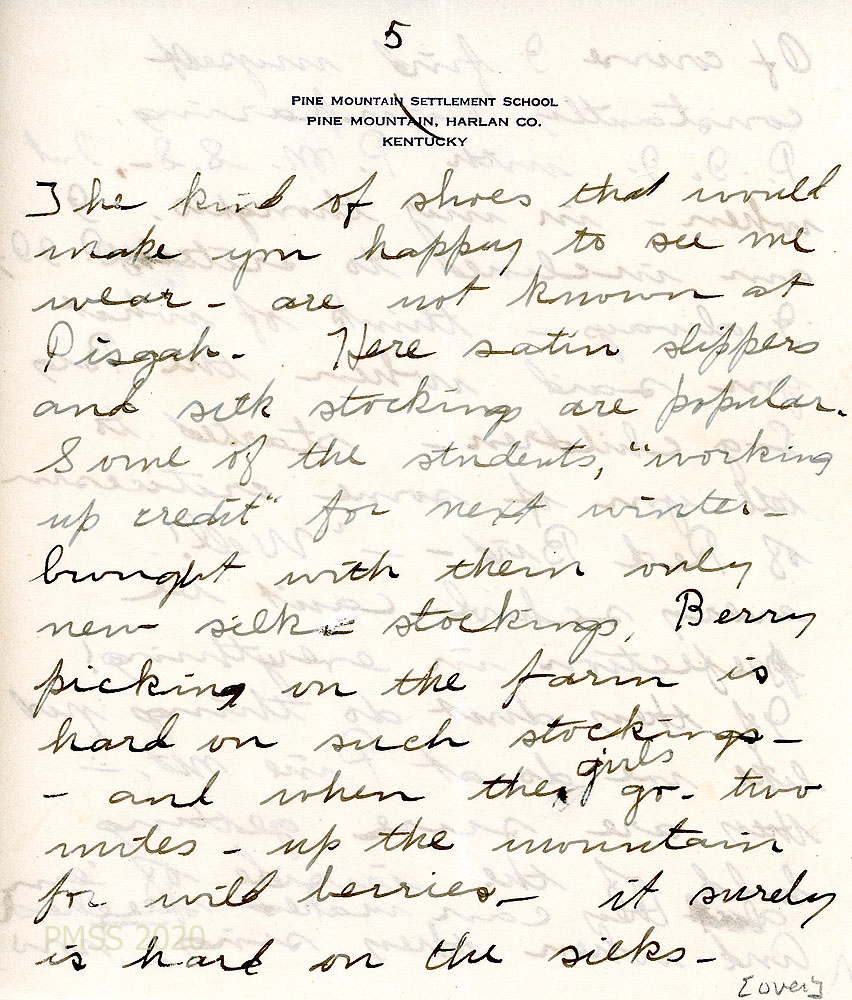 5
PINE MOUNTAIN SETTLEMENT SCHOOL
PINE MOUNTAIN, HARLAN CO.
KENTUCKY
The kind of shoes that would
make you happy to see me
wear - are not known at
Pisgah. Here satin slippers
and silk stockings are popular.
Some of the students, "working
up credit" for next winter -
brought with them only
new silk - stockings. Berry
picking on the farm is
hard on such stockings -
- and when the girls go - two
miles - up the mountain
for wild berries - it surely
is hard on the silks -
[over]
PMSS 2020